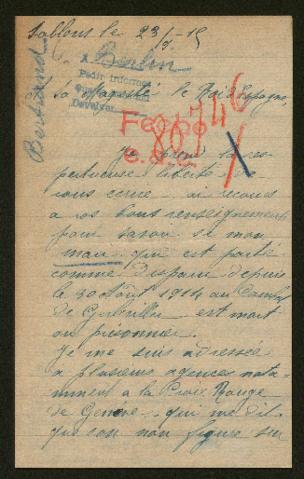 Sablons le 23/9-15
Bertrand
A Berlin
Pedir informes
Devolver
Sa Majesté le Roi d'Espagne,
Fecho
80746
e.a.e.
Je prend la res-
pectueuse liberté de
vous écrire, ai recours
a vos bons renseignements
pour savoir si mon
mari qui est porté
comme disparu depuis
le 30 Août 1914 au Combat
de est mort
ou prisonnier.
Je me suis adressée
a plusieurs agences nota-
mment a la Croix Rouge
de Genève, qui me dit
que son nom figure sur